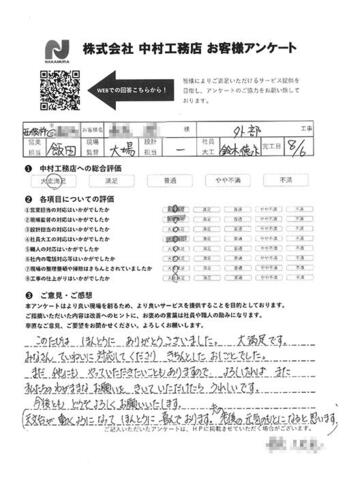 NAKAMURA
株式会社 中村工務店 お客様アンケート
WEBでの回答こちらから!
皆様によりご満足いただけるサービス提供を
目指し、アンケートのご協力をお願い致して
おります。
お客様名 様 外部 工事
営業担当 飯田 現場監督 大場 設計担当 ー 社員大工 完工日 8/6
❶ 中村工務店への総合評価
大変満足 満足 普通 やや不満 不満
❷ 各項目についての評価
①営業担当の対応はいかがでしたか 満足 普通 やや不満 不満
②現場監督の対応はいかがでしたか 満足 普通 やや不満 不満
③設計担当の対応はいかがでしたか 満足 普通 やや不満 不満
④社員大工の対応はいかがでしたか 満足 普通 やや不満 不満
⑤職人の対応はいかがでしたか 満足 普通 やや不満 不満
⑥社内の電話対応等はいかがでしたか 満足 普通 やや不満 不満
⑦現場の整理整頓や掃除はきちんとされていましたか 満足 普通 やや不満 不満
⑧工事の仕上がりはいかがでしたか 満足 普通 やや不満 不満
❸ ご意見・ご感想
本アンケートはより良い現場を創るため、より良いサービスを提供することを目的としております。
ご指摘いただいた内容は改善へのヒントに、お褒めの言葉は社員や職人の励みになります。
率直なご意見、ご要望をお聞かせください。よろしくお願いします。
このたびは ほんとうに ありがとうございました。 大満足です。
みなさん ていねいに 対応してくださり きちんとした おしごとでした。
まだ 他にも やっていただきたいこともありますので、よろしければ また
私たちのわがままなお願いを きいていただけたら うれしいです。
今後とも どうぞ よろしく お願いいたします。
ようになって ほんとうに 喜んでおります。 老後の 元気のもとになると思います。
ご記入いただいたアンケートは、HPに掲載させていただく場合がございます。